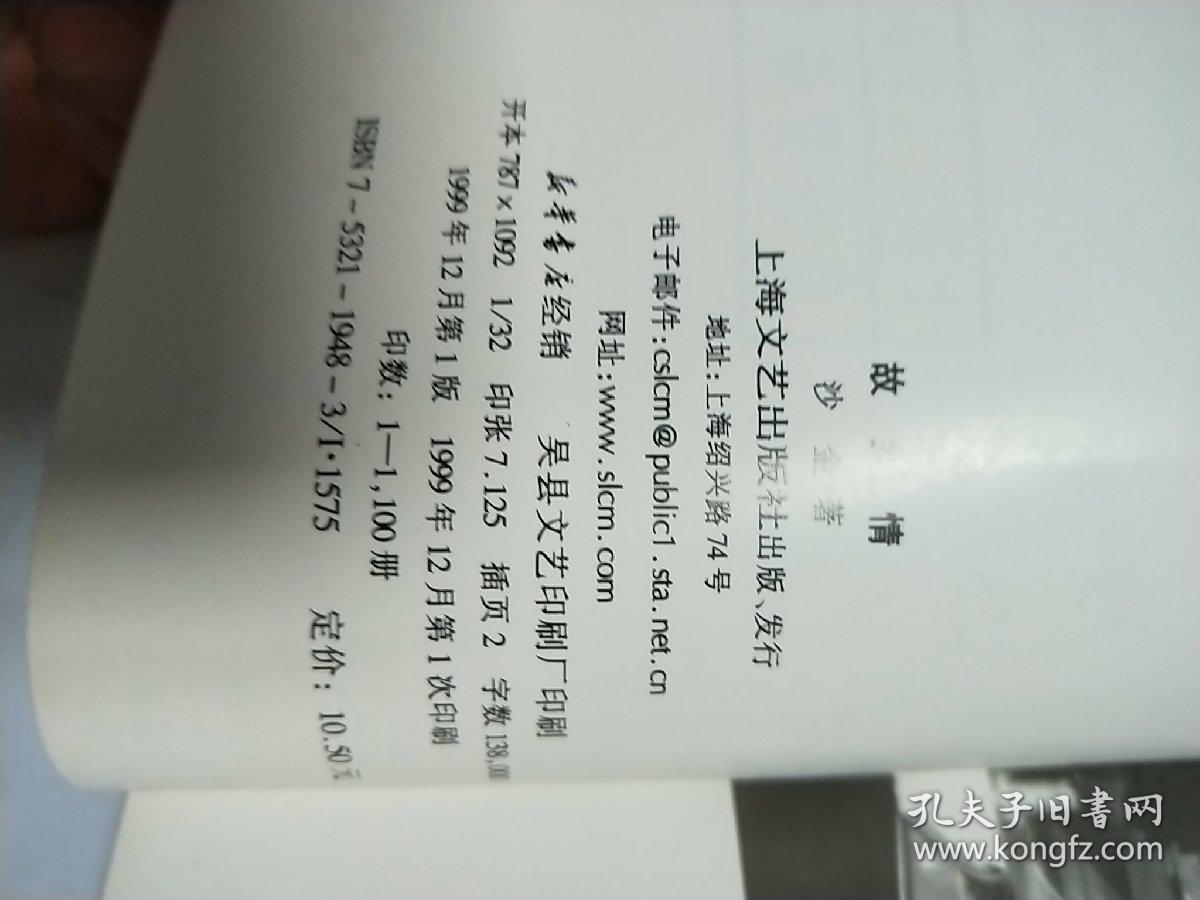 故 情
沙 金 著
上海文艺出版社出版、发行
地址:上海绍兴路74号
电子邮件:cslcm@public1.sta.net.cn
网址:www.slcm.com
新华书店经销 吴县文艺印刷厂印刷
开本787×1092 1/32 印张7.125 插页2 字数138,00
1999年12月第1版 1999年12月第1次印刷
印数:1—1,100册
ISBN 7-5321-1948-3/I·1575 定价:10.50元
孔夫子旧书网
www.kongfz.com